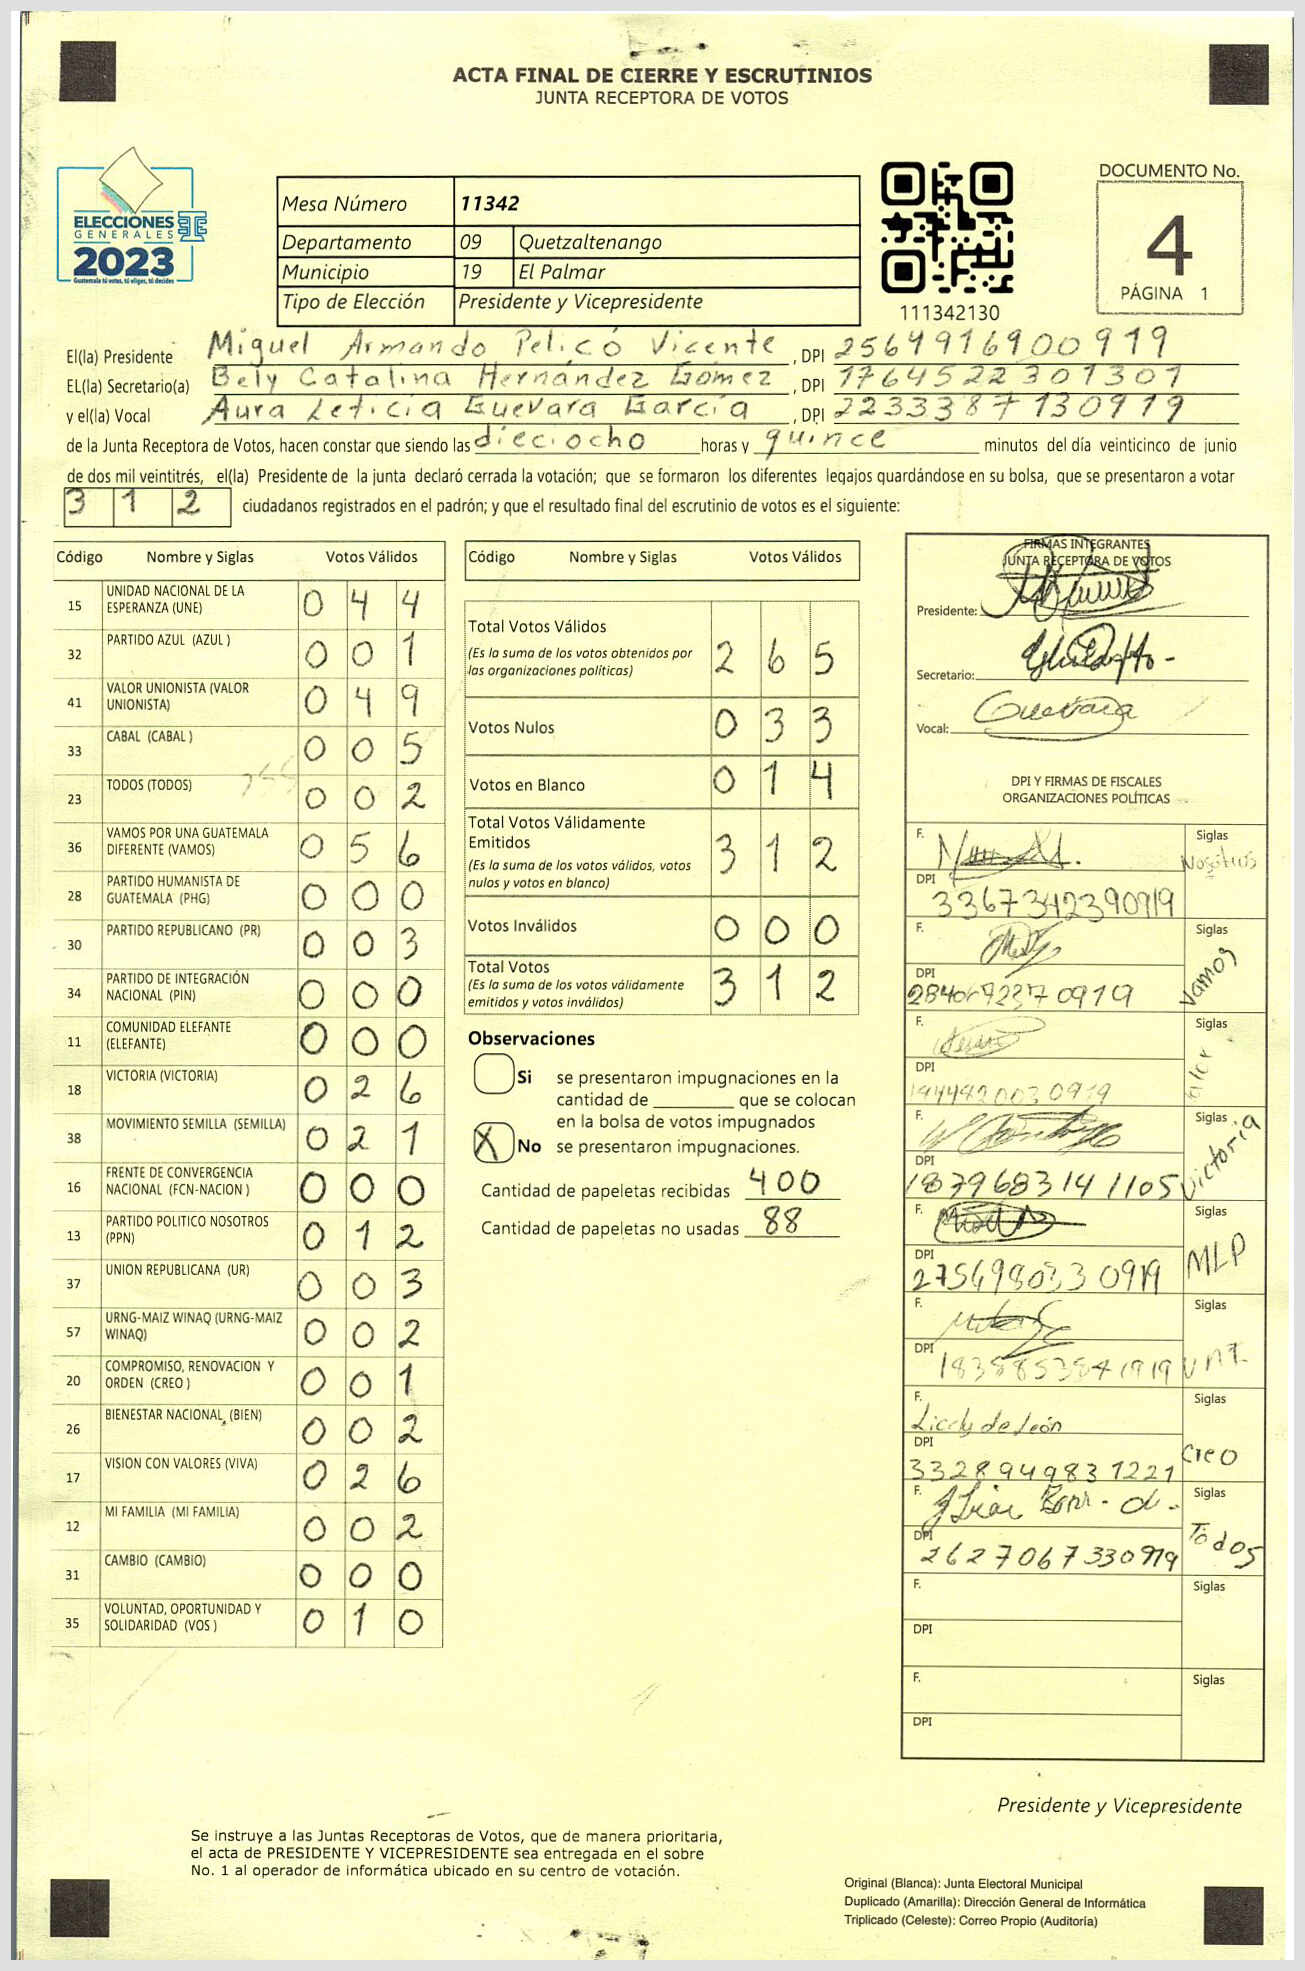 ACTA FINAL DE CIERRE Y ESCRUTINIOS
JUNTA RECEPTORA DE VOTOS
ELECCIONES
GENERALES
2023
Guatemala tú votas, tú eliges, tú decides
Mesa Número 11342
Departamento 09 Quetzaltenango
Municipio 19 El Palmar
Tipo de Elección Presidente y Vicepresidente
111342130
DOCUMENTO No.
4
PÁGINA 1
El(la) Presidente Miguel Armando Pelicó Vicente, DPI 2564916900919
EL(la) Secretario(a) Bely Catalina Hernández Gómez, DPI 1764522301301
y el(la) Vocal Aura Leticia Guevara García, DPI 2233387130919
de la Junta Receptora de Votos, hacen constar que siendo las dieciocho horas y quince minutos del día veinticinco de junio
de dos mil veintitrés, el(la) Presidente de la junta declaró cerrada la votación; que se formaron los diferentes legajos quardándose en su bolsa, que se presentaron a votar
312 ciudadanos registrados en el padrón; y que el resultado final del escrutinio de votos es el siguiente:
Código Nombre y Siglas Votos Válidos
15 UNIDAD NACIONAL DE LA ESPERANZA (UNE) 0 4 4
32 PARTIDO AZUL (AZUL ) 0 0 1
41 VALOR UNIONISTA (VALOR UNIONISTA) 0 4 9
33 CABAL (CABAL ) 0 0 5
23 TODOS (TODOS) 0 0 2
36 VAMOS POR UNA GUATEMALA DIFERENTE (VAMOS) 0 5 6
28 PARTIDO HUMANISTA DE GUATEMALA (PHG) 0 0 0
30 PARTIDO REPUBLICANO (PR) 0 0 3
34 PARTIDO DE INTEGRACIÓN NACIONAL (PIN) 0 0 0
11 COMUNIDAD ELEFANTE (ELEFANTE) 0 0 0
18 VICTORIA (VICTORIA) 0 2 6
38 MOVIMIENTO SEMILLA (SEMILLA) 0 2 1
16 FRENTE DE CONVERGENCIA NACIONAL (FCN-NACION ) 0 0 0
13 PARTIDO POLITICO NOSOTROS (PPN) 0 1 2
37 UNION REPUBLICANA (UR) 0 0 3
57 URNG-MAIZ WINAQ (URNG-MAIZ WINAQ) 0 0 2
20 COMPROMISO, RENOVACION Y ORDEN (CREO ) 0 0 1
26 BIENESTAR NACIONAL (BIEN) 0 0 2
17 VISION CON VALORES (VIVA) 0 2 6
12 MI FAMILIA (MI FAMILIA) 0 0 2
31 CAMBIO (CAMBIO) 0 0 0
35 VOLUNTAD, OPORTUNIDAD Y SOLIDARIDAD (VOS ) 0 1 0
Código Nombre y Siglas Votos Válidos
Total Votos Válidos 2 6 5
(Es la suma de los votos obtenidos por
las organizaciones políticas)
Votos Nulos 0 3 3
Votos en Blanco 0 1 4
Total Votos Válidamente
Emitidos 3 1 2
(Es la suma de los votos válidos, votos
nulos y votos en blanco)
Votos Inválidos 0 0 0
Total Votos 3 1 2
(Es la suma de los votos válidamente
emitidos y votos inválidos)
Observaciones
Si se presentaron impugnaciones en la
cantidad de ________ que se colocan
en la bolsa de votos impugnados
X No se presentaron impugnaciones.
Cantidad de papeletas recibidas 400
Cantidad de papeletas no usadas 88
FIRMAS INTEGRANTES
JUNTA RECEPTORA DE VOTOS
Presidente:
Secretario:
Vocal: Guevara
DPI Y FIRMAS DE FISCALES
ORGANIZACIONES POLÍTICAS
F. Siglas Nosotros
DPI 3367342390919
F. Siglas Vamos
DPI
F. Siglas
DPI
F. Siglas Victoria
DPI 1879683141105
F. Siglas MLP
DPI 2756980330919
F. Siglas
DPI
F. de León Siglas Creo
DPI 3328949831221
F. Siglas Todos
DPI 2627067330919
F. Siglas
DPI
F. Siglas
DPI
Presidente y Vicepresidente
Se instruye a las Juntas Receptoras de Votos, que de manera prioritaria,
el acta de PRESIDENTE Y VICEPRESIDENTE sea entregada en el sobre
No. 1 al operador de informática ubicado en su centro de votación.
Original (Blanca): Junta Electoral Municipal
Duplicado (Amarilla): Dirección General de Informática
Triplicado (Celeste): Correo Propio (Auditoría)